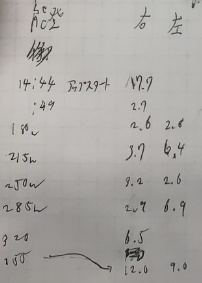 右 左
14:44 アップスタート 17.7
:49 2.7
180w 2.6 2.8
215w 3.7 6.4
250w 3.2 2.6
285w 2.9 6.9
320 6.5
355 → 12.0 9.0